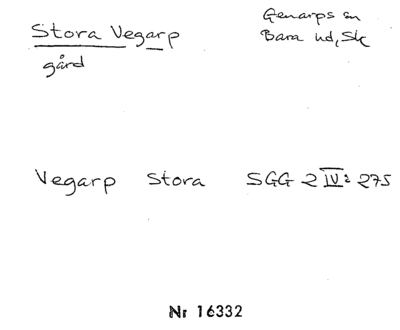 Stora Vegarp
gård
Genarps sn
Bara hd, Sk
Vegarp Stora SGG 2 IV² 275
Nr 16332